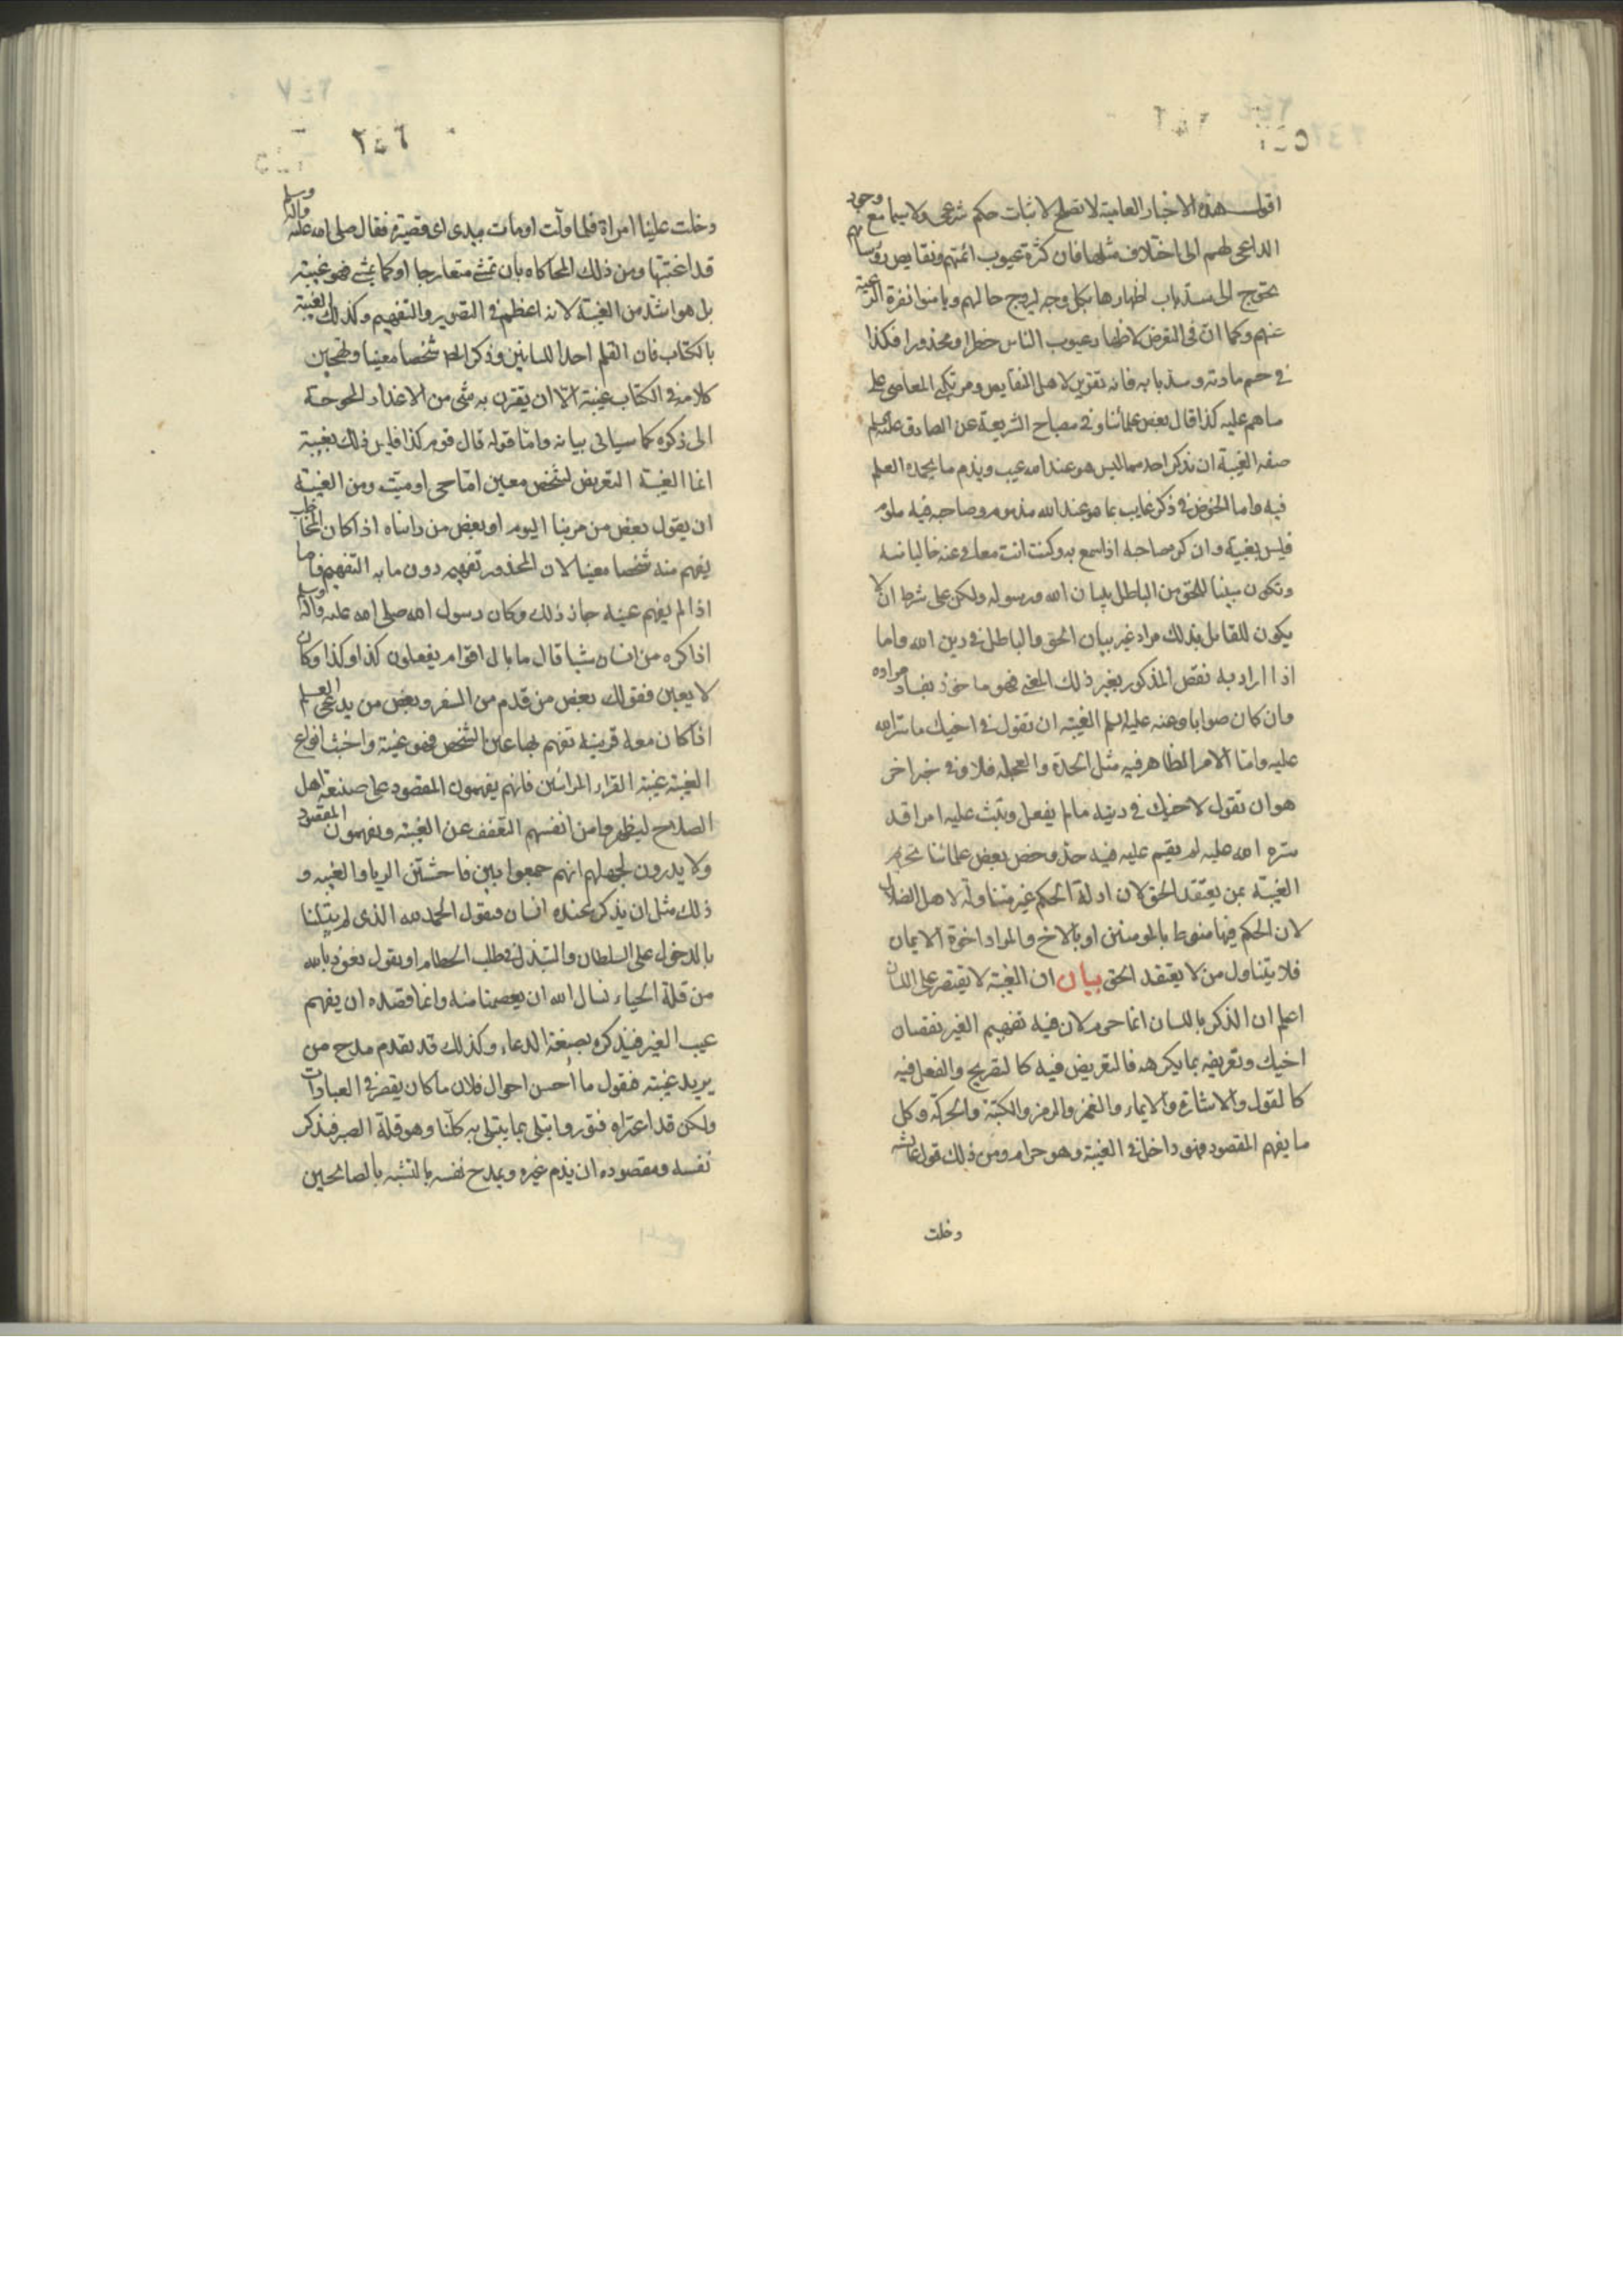 اقول هذه الاخبار العامية لا تصلح لاثبات حكم شرعى ولا سيما مع وجود
الداعى لهم الى اختلاف مثلها فان كثرة عيوب ائمتهم ونقايص روسائهم
يحوج الى سد باب اظهارها بكل وجه ليروج حالهم ويامنوا نفرة الرعية
عنهم وكما ان فى التعرض لاظهار عيوب الناس خطرا ومحذورا فكذا
فى حسم مادته وسد بابه فانه تغرير لاهل النقايص ومرتكبى المعاصى على
ما هم عليه كذا قال بعض علمائنا وفى مصباح الشريعة عن الصادق عليه السلم
صفه الغيبة ان تذكر احد بما ليس هو عند الله عيب ويذم ما يحمده العلم
فيه واما الخوض فى ذكر غايب بما هو عند الله مذموم وصاحبه فيه ملوم
فليس بغيبة وان كره صاحبه اذا سمع به وكنت انت معافى عنه خاليا منه
وتكون مبينا للحق من الباطل ببيان الله ورسوله ولكن على شرط ان لا
يكون للقائل بذلك مراد غير بيان الحق والباطل فى دين الله واما
اذا اراد به نقص المذكور بغير ذلك المعنى فهو ماخوذ بفساد مراده
وان كان صوابا وعنه عليه السلم الغيبة ان تقول فى اخيك ما ستره الله
عليه واما الامر الظاهر فيه مثل الحدة والعجلة فلا وفى خبر اخر
هو ان تقول لاخيك فى دينه ما لم يفعل وتبث عليه امرا قد
ستره الله عليه لم يقم عليه فيه حد وخص بعض علمائنا تحريم
الغيبة بمن يعتقد الحق لان ادلة الحكم غير متناولة لاهل الضلال
لان الحكم فيها منوط بالمومنين او بالاخ والمراد اخوة الايمان
فلا يتناول من لا يعتقد الحق بيان ان الغيبة لا تقتصر على اللسان
اعلم ان الذكر باللسان انما حرم لان فيه تفهيم الغير نقصان
اخيك وتعريفه بما يكرهه فالتعريض فيه كالتصريح والفعل فيه
كالقول والاشارة والايماء والغمز والرمز والكتبة والحركة وكل
ما يفهم المقصود فهو داخل فى الغيبة وهو حرام ومن ذلك قول عايشه
دخلت
٢٤٦
دخلت علينا امراة فلما ولت اومات بيدى اى قصيرة فقال صلى الله عليه واله وسلم
قد اغتبتها ومن ذلك المحاكاه بان تمشى متعارجا او كما يمشى فهو غيبة
بل هو اشد من الغيبة لانه اعظم فى التصوير والتفهيم وكذلك الغيبة
بالكتاب فان القلم احد اللسانين وذكر شخصا معينا وتهجين
كلامه فى الكتاب غيبة الا ان يقترن به شى من الاعذار المحوجة
الى ذكره كما سياتى بيانه واما قوله قال قوم كذا فليس ذلك بغيبة
انما الغيبة التعريض لشخص معين اما حى او ميت ومن الغيبة
ان يقول بعض من مر بنا اليوم او بعض من رايناه اذا كان المخاطب
يفهم منه شخصا معينا لان المحذور تفهيمه دون ما به التفهيم فاما
اذا لم يفهم عينه جاز ذلك وكان رسول الله صلى الله عليه واله وسلم
اذا كره من انسان شيا قال ما بال اقوام يفعلون كذا وكذا وكان
لا يعين فقولك بعض من قدم من السفر وبعض من يدعى العلم
اذا كان معه قرينة تفهم بها عين الشخص فهو غيبة واخبث انواع
الغيبة غيبة القراء المرائين فانهم يفهمون المقصود على صنيعة اهل
الصلاح ليظهروا من انفسهم التعفف عن الغيبة ويفهمون المقصود
ولا يدرون لجهلهم انهم جمعوا بين فاحشتين الريا والغيبه و
ذلك مثل ان يذكر عنده انسان فيقول الحمد لله الذى لم يبتلنا
بالدخول على السلطان والتبذل فى طلب الحطام او يقول نعوذ بالله
من قلة الحياء نسال الله ان يعصمنا منه وانما قصده ان يفهم
عيب الغير فيذكره بصيغة الدعاء وكذلك قد يقدم مدح من
يريد غيبته فيقول ما احسن احوال فلان ما كان يقصر فى العبادات
ولكن قد اعتراه فتور وابتلى بما يبتلى به كلنا وهو قلة الصبر فيذكر
نفسه ومقصوده ان يذم غيره ويمدح نفسه بالتشبه بالصالحين